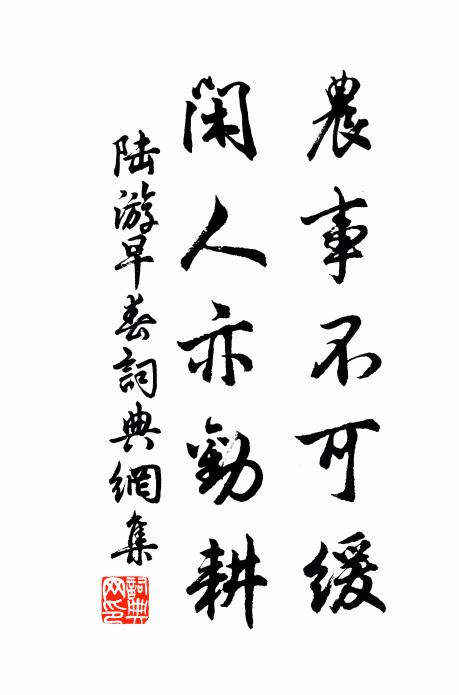 農事不可緩
閑人亦勸耕
陸游早春詞典網集
詞典網印